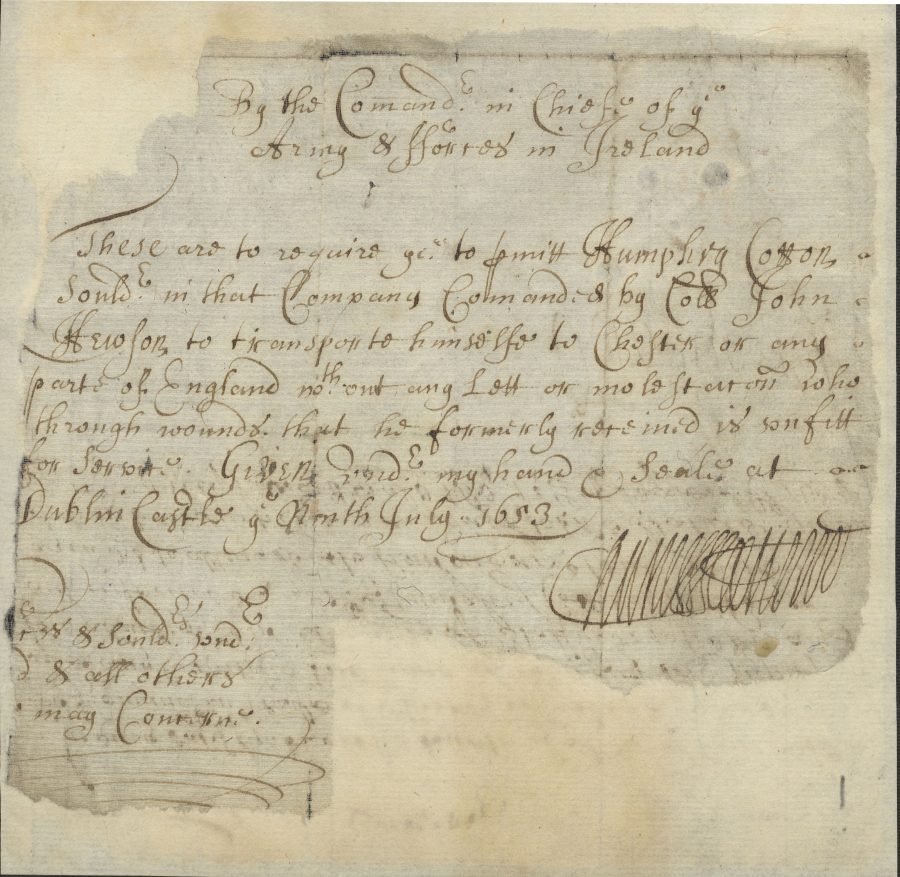 By the Comandr. in Chiefe of ye
Army & fforces in Ireland
These are to require you to pmitt Humphrey Cotton
Souldr. in that Company Comanded by Coll John
Hewson to transporte himselfe to Chester or any
parte of England wthout any Lett or molestacon who
through wounds that he formerly received is vnfitt
for Service. Given vndr. my hand & Seale at
Dublin Castle ye Ninth July 1653
rs & Souldrs. vndr.
& all others
may Concerne.